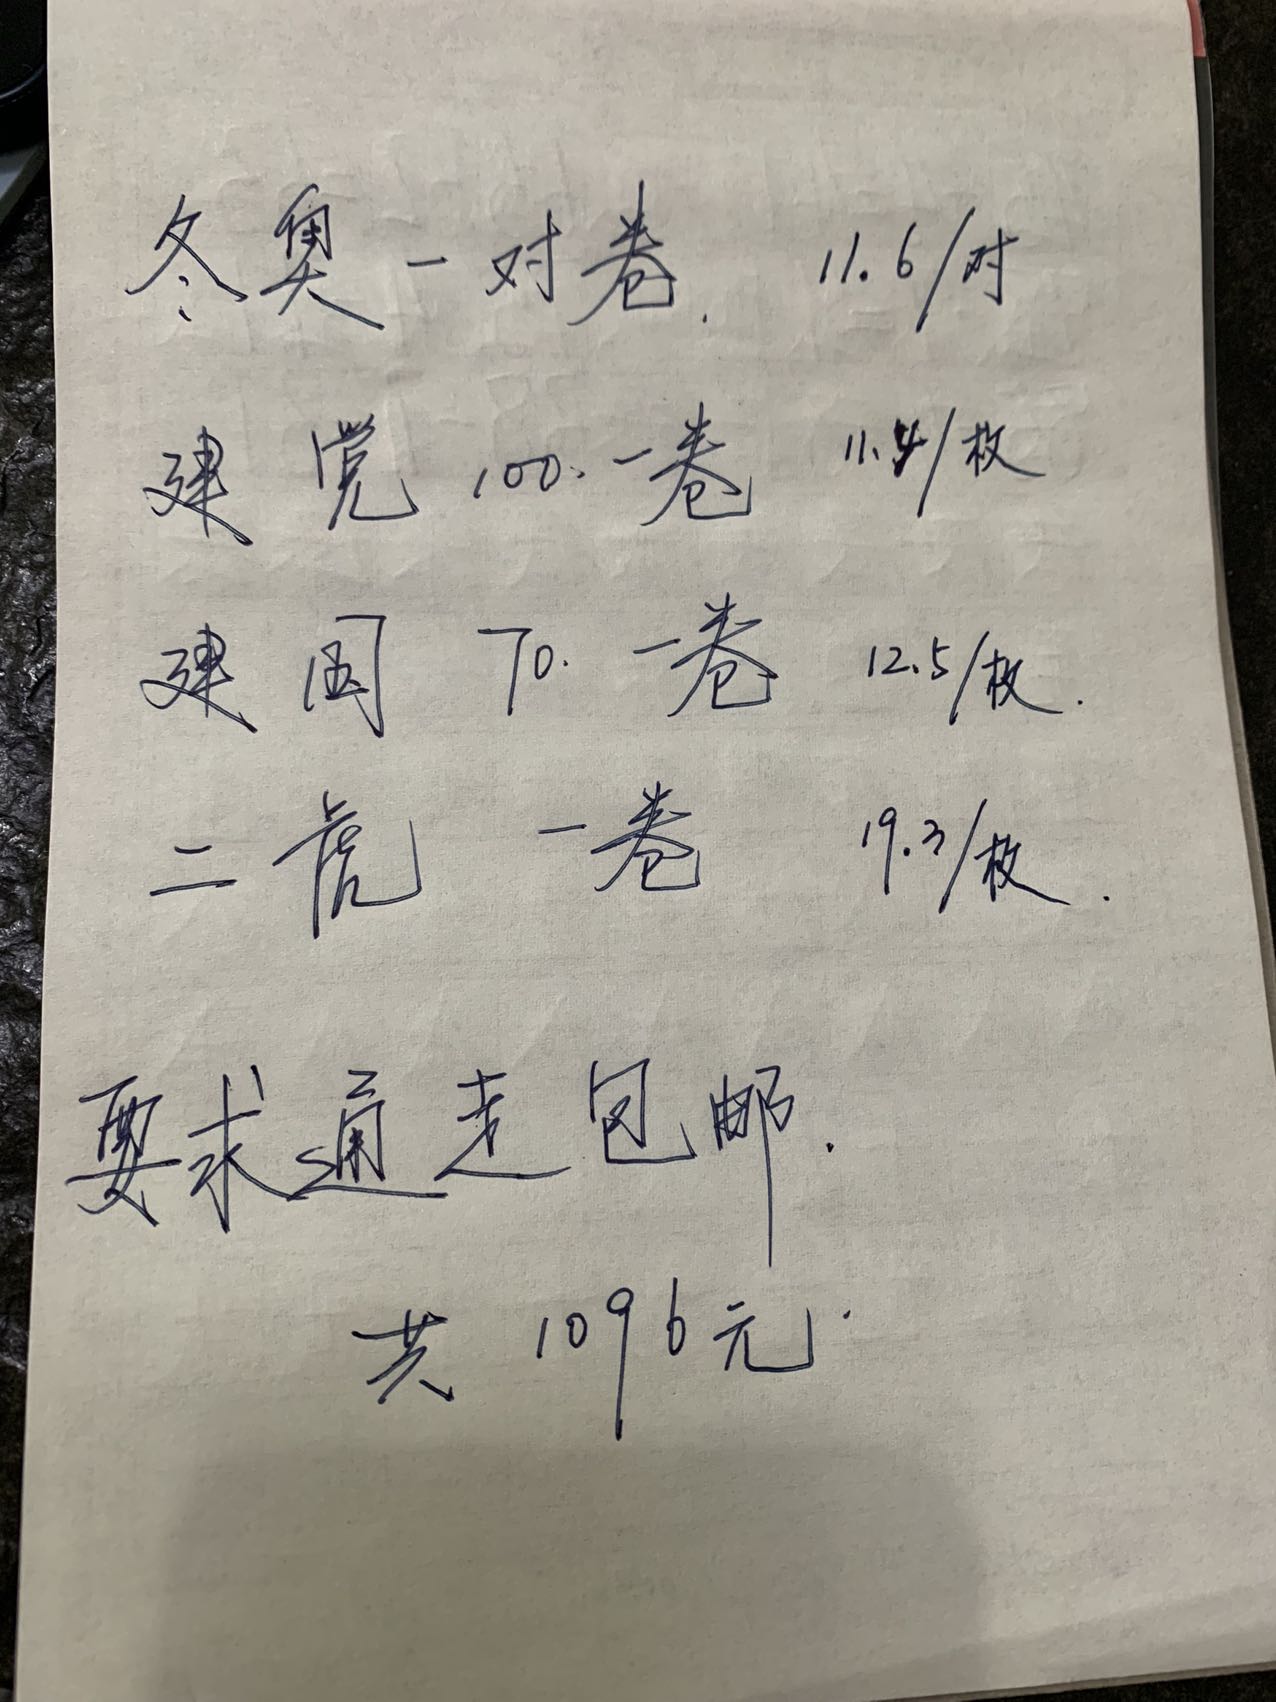 冬奥一对卷. 11.6/对
建党100.一卷 11.4/枚
建国70.一卷 12.5/枚.
二虎 一卷 19.3/枚.
要求通走包邮.
共1096元.